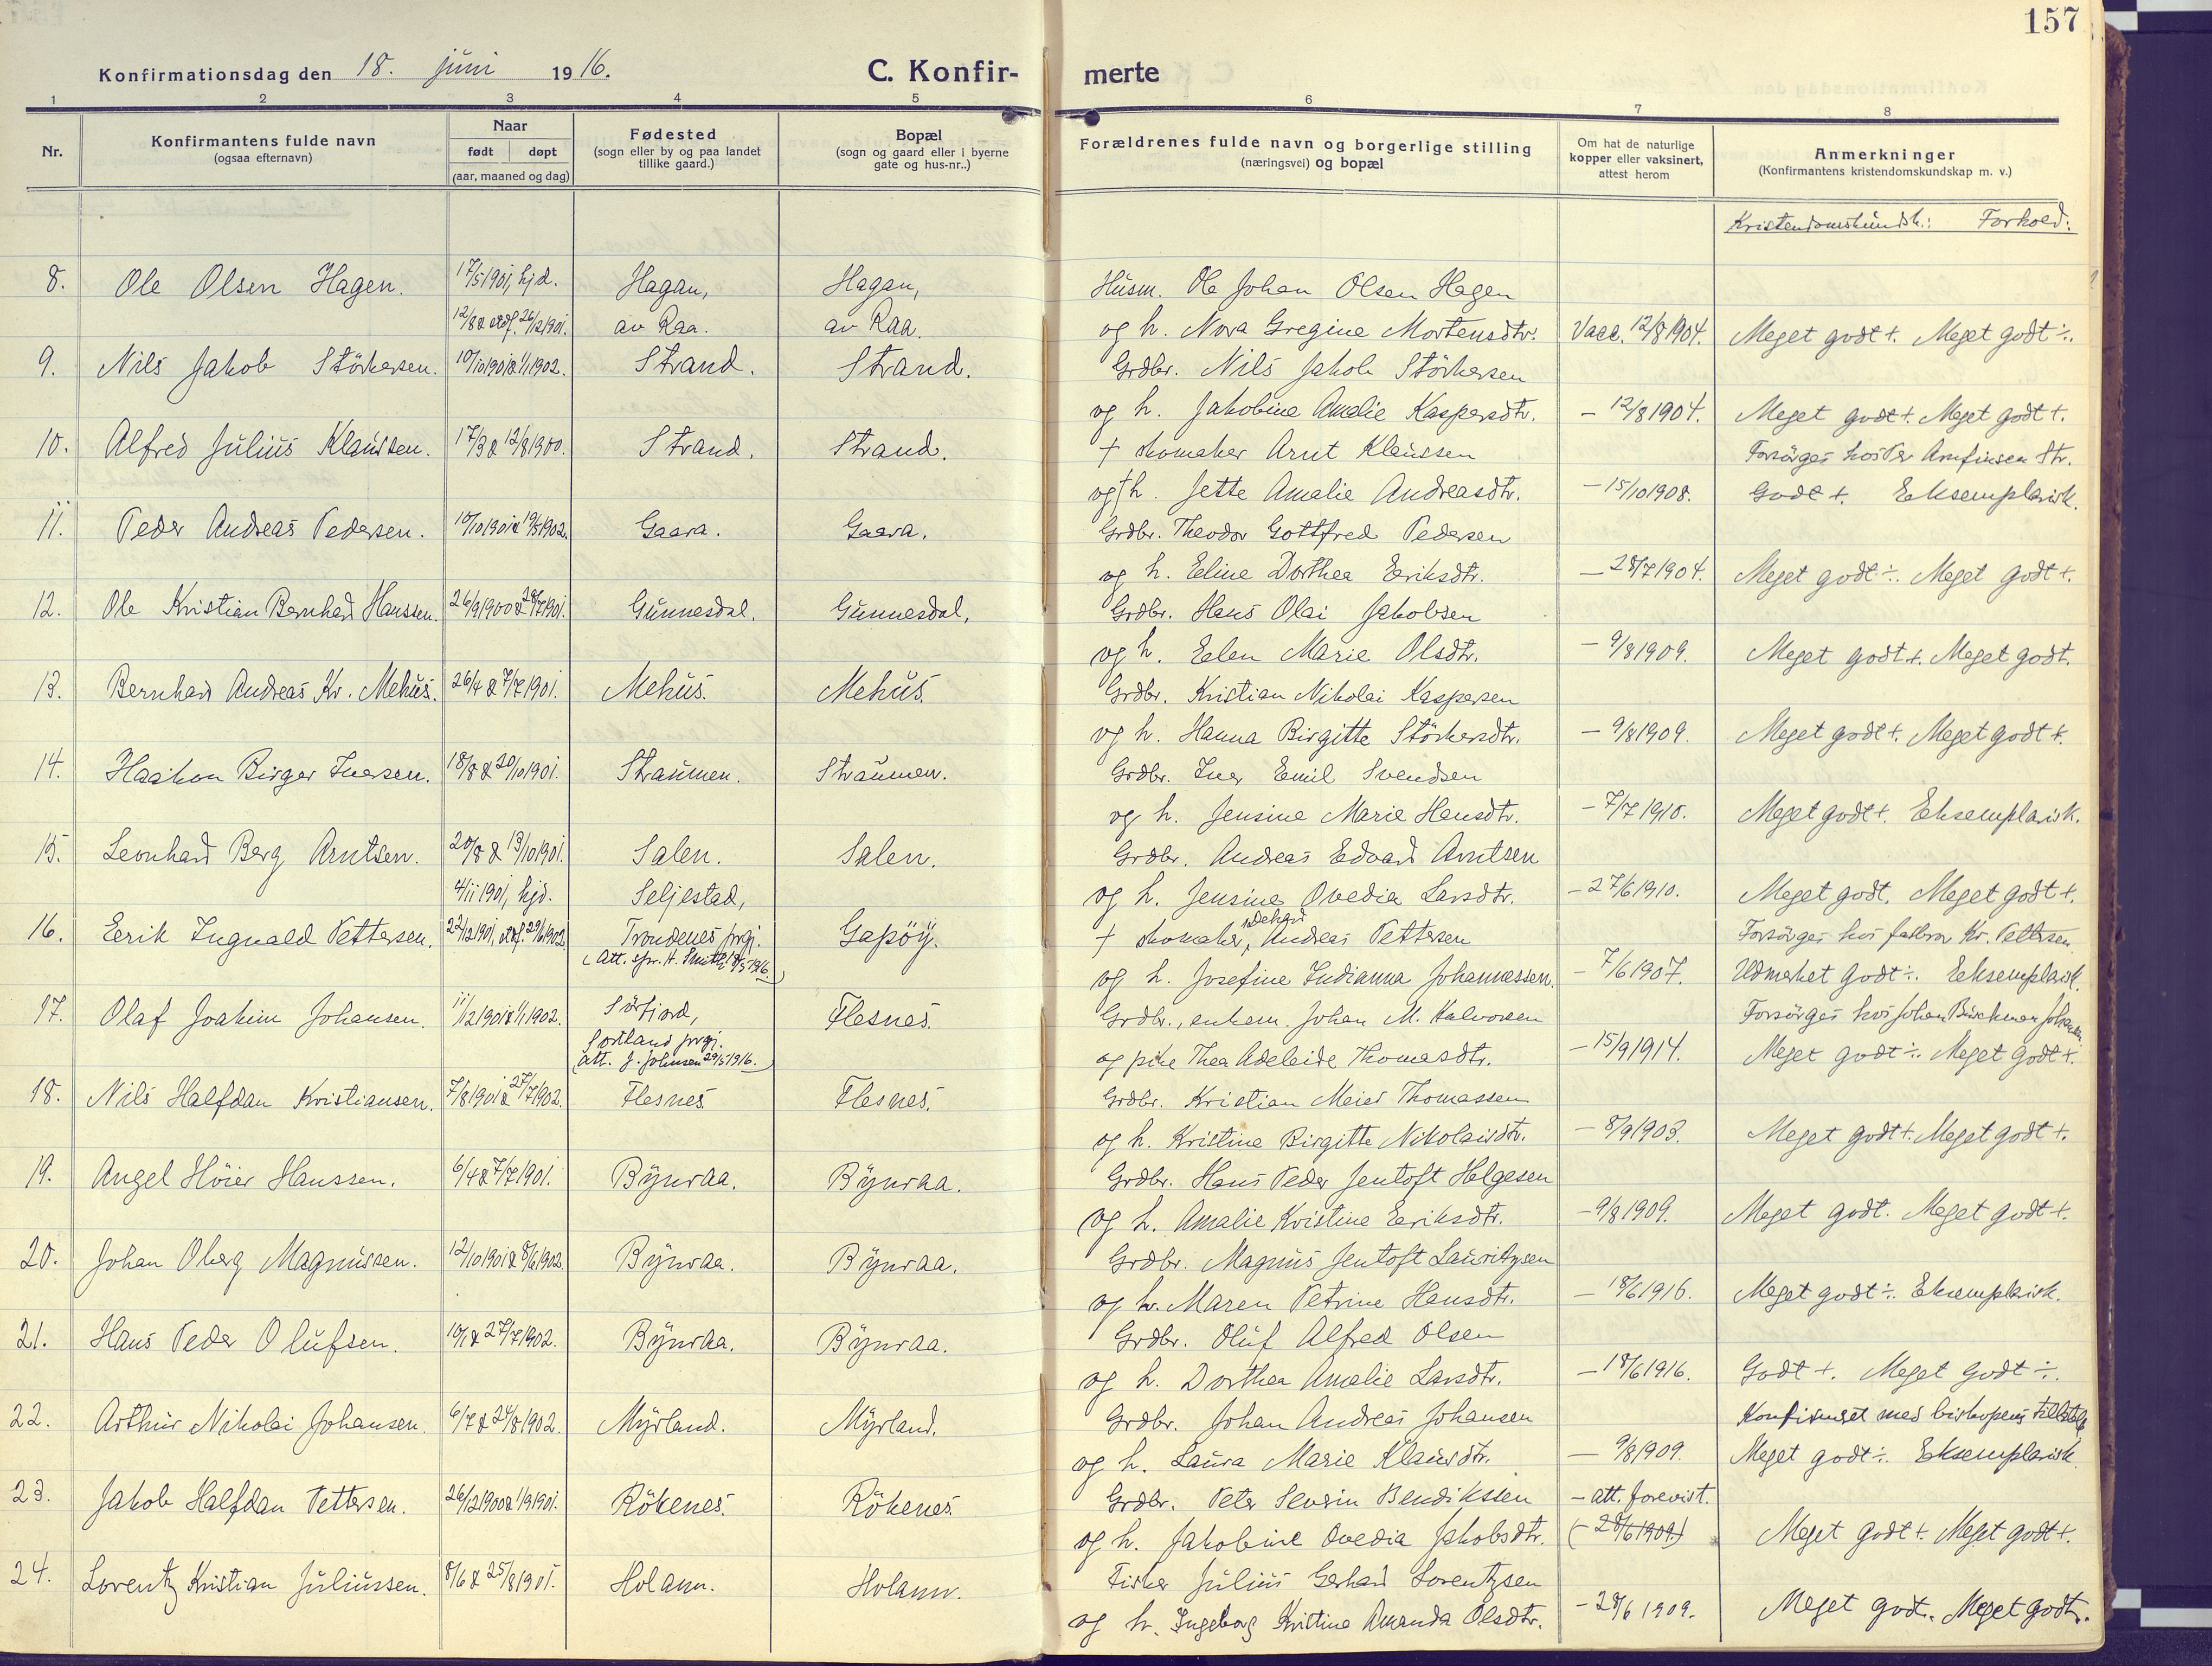 157
Konfirmationsdag den 18. juni 1916.
C. Konfir- merte
1 2 3 4 5 6 7 8
Nr.
Konfirmantens fulde navn
(ogsaa efternavn)
Naar
født døpt
(aar, maaned og dag)
Fødested
(sogn eller by og paa landet
tillike gaard.)
Bopæl
(sogn og gaard eller i byerne
gate og hus-nr..)
Forældrenes fulde navn og borgerlige stilling
(næringsvei) og bopæl
Om hat de naturlige
kopper eller vaksinert,
attest herom
Anmerkninger
(Konfirmantens kristendomskundskap m. v.)
Kristendomskundsk.: Forhold:
8. Ole Olsen Hagen. 17/5 1901, hjd. Hagan, Hagan, Husm. Ole Johan Olsen Hagen
12/8 & stdf. 26/12 1901. av Raa. av Raa. og h. Nora Gregine Mortensdtr. Vacc. 12/8 1904. Meget godt +. Meget godt ÷.
9. Nils Jakob Störkersen. 10/10 1901 & 1/1 1902. Strand. Strand. Grdbr. Nils Jakob Störkersen
og h. Jakobine Amalie Kaspersdtr. - 12/8 1904. Meget godt +. Meget godt +.
10. Alfred Julius Klaussen. 17/3 & 12/8 1900. Strand. Strand. + skomaker Arnt Klaussen Forsörges hos Per Arnfinsen Str.
og + h. Jette Amalie Andreasdtr. - 15/10 1908. Godt +. Eksemplarisk.
11. Peder Andreas Pedersen. 10/10 1901 & 19/5 1902. Gaara. Gaara. Grdbr. Theodor Gottfred Pedersen
og h. Eline Dorthea Eeriksdtr. - 28/7 1904. Meget godt ÷. Meget godt +.
12. Ole Kristian Bernhard Hanssen. 26/9 1900 & 28/7 1901. Gunnesdal. Gunnesdal. Grdbr. Hans Olai Jakobsen
og h. Eelen Marie Olsdtr. - 9/8 1909. Meget godt +. Meget godt.
13. Bernhard Andreas Kr. Mehus. 26/4 & 7/7 1901. Mehus. Mehus. Grdbr. Kristian Nikolai Kaspersen
og h. Hanna Birgitte Störkersdtr. - 9/8 1909. Meget godt +. Meget godt +.
14. Haakon Birger Iversen. 18/8 & 20/10 1901. Straumen. Straumen. Grdbr. Iver Emil Svendsen
og h. Jensine Marie Hansdtr. - 7/7 1910. Meget godt +. Eksemplarisk.
15. Leonhard Berg Arntsen. 20/8 & 13/10 1901. Salen. Salen. Grdbr. Andreas Edvard Arntsen
4/11 1901, hjd. Seljestad, og h. Jensine Ovedia Larsdtr. - 27/6 1910. Meget godt. Meget godt +.
16. Eerik Ingvald Pettersen. 22/12 1901, stdf. 29/6 1902. Trondenes prgj. Gapöy. + skomaker, Andreas Pettersen Forsörges hos farbror Kr. Pettersen
(Att. spr. H. Smith 18/5 1916.) og h. Josefine Indianna Johannessen. - 7/6 1907. Udmerket godt ÷. Eeksemplarisk.
17. Olaf Joakim Johansen. 11/12 1901 & 1/1 1902. Sörfjord, Flesnes. Grdbr., enkem. Johan M. Halvorsen Forsörges hos Johan Bäckman Johansen
Sortland prgj.
(att. J. Johnsen 29/5 1916.) og pike Thea Adeleide Thomasdtr. - 15/9 1914. Meget godt ÷. Meget godt +.
18. Nils Halfdan Kristiansen. 7/8 1901 & 27/7 1902. Flesnes. Flesnes. Grdbr. Kristian Meier Thomassen
og h. Kristine Birgitte Nikolaisdtr. - 8/9 1903. Meget godt +. Meget godt +.
19. Angel Höier Hanssen. 6/4 & 7/7 1901. Bynraa. Bynraa. Grdbr. Hans Peder Jentoft Helgesen
og h. Amalie Kristine Eeriksdtr. - 9/8 1909. Meget godt. Meget godt +.
20. Johan Oberg Magnussen. 12/10 1901 & 8/6 1902. Bynraa. Bynraa. Grdbr. Magnus Jentoft Lauritzsen
og h. Maren Petrine Hansdtr. - 18/6 1916. Meget godt ÷. Eksemplarisk.
21. Hans Peder Olufsen. 10/1 & 27/7 1902. Bynraa. Bynraa. Grdbr. Oluf Alfred Olsen
og h. Dorthea Amalie Larsdtr. - 18/6 1916. Godt +. Meget godt ÷.
22. Arthur Nikolai Johansen. 6/7 & 24/8 1902. Myrland. Myrland. Grdbr. Johan Andreas Johansen Konfirmeret med biskopens tillatelse
og h. Laura Marie Klausdtr. - 9/8 1909. Meget godt ÷. Eksemplarisk.
23. Jakob Halfdan Pettersen. 26/12 1900 & 1/9 1901. Rökenes. Rökenes. Grdbr. Peter Severin Bendikssen - att. forevist.
og h. Jakobine Ovedia Jakobsdtr. (- 28/6 1909) Meget godt +. Meget godt +.
24. Lorentz Kristian Juliussen. 8/6 & 25/8 1901. Holann. Holann. Fisker Julius Gerhard Lorentzsen
og h. Ingeborg Kristine Amanda Olsdtr. - 28/6 1909. Meget godt. Meget godt.